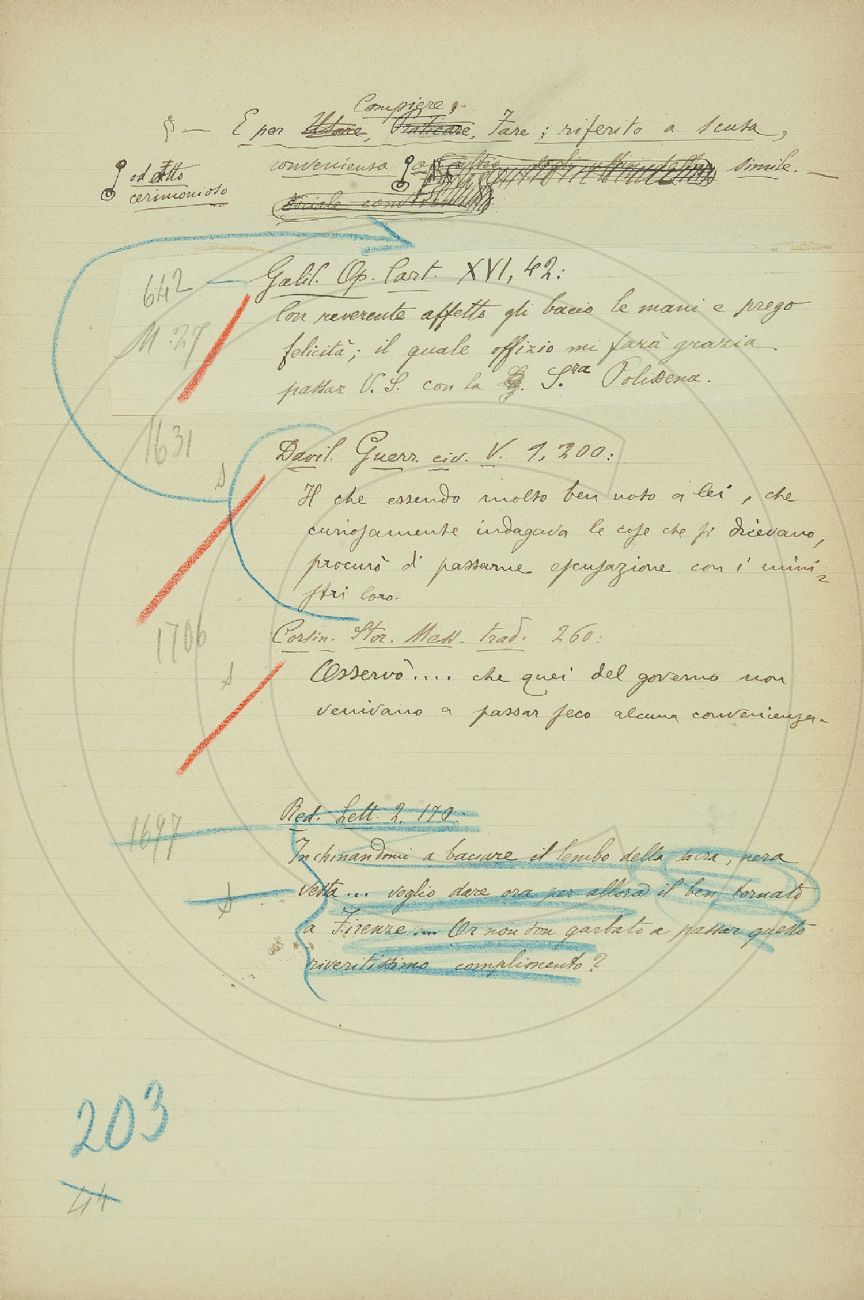 Compiere,
§ — E per Usare, Praticare, Fare; riferito a scusa,
convenienza o simile. —
od atto
cerimonioso
sociale
642
M. 27
Galil. Op. Cart. XVI, 42:
Con reverente affetto gli bacio le mani e prego
felicità; il quale offizio mi farà grazia
passar V. S. con la S.ra Polissena.
1631
Davil. Guerr. civ. V. 1, 200:
Il che essendo molto ben noto a lei, che
curiosamente indagava le cose che si dicevano,
procurò di passarne escusazione con i mini=
stri loro.
1706
Corsin. Stor. Mess. trad. 260:
Osservò.... che quei del governo non
venivano a passar seco alcuna convenienza.
1697
Red. Lett. 2. 170:
Inchinandomi a baciare il lembo della sacra, nera
vesta... voglio dare ora per allora il ben tornato
a Firenze... Or non son garbato a passar questo
riveritissimo complimento?
203
44